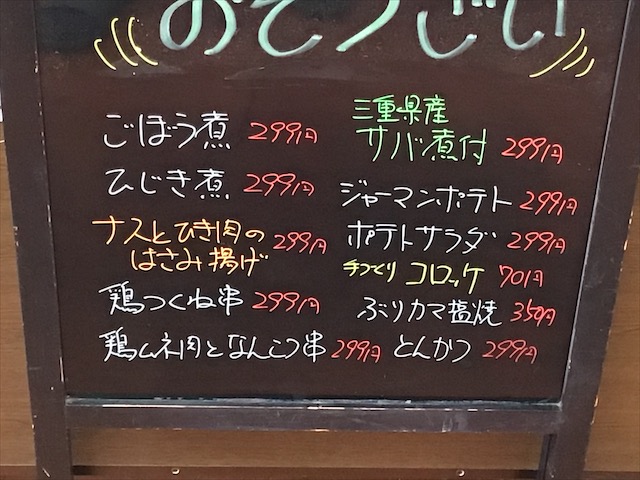 おそうざい
ごぼう煮 299円
ひじき煮 299円
ナスとひき肉の
はさみ揚げ 299円
鶏つくね串 299円
鶏ムネ肉となんこつ串 299円
三重県産
サバ煮付 299円
ジャーマンポテト 299円
ポテトサラダ 299円
手づくり コロッケ 70円
ぶりカマ塩焼 350円
とんかつ 299円